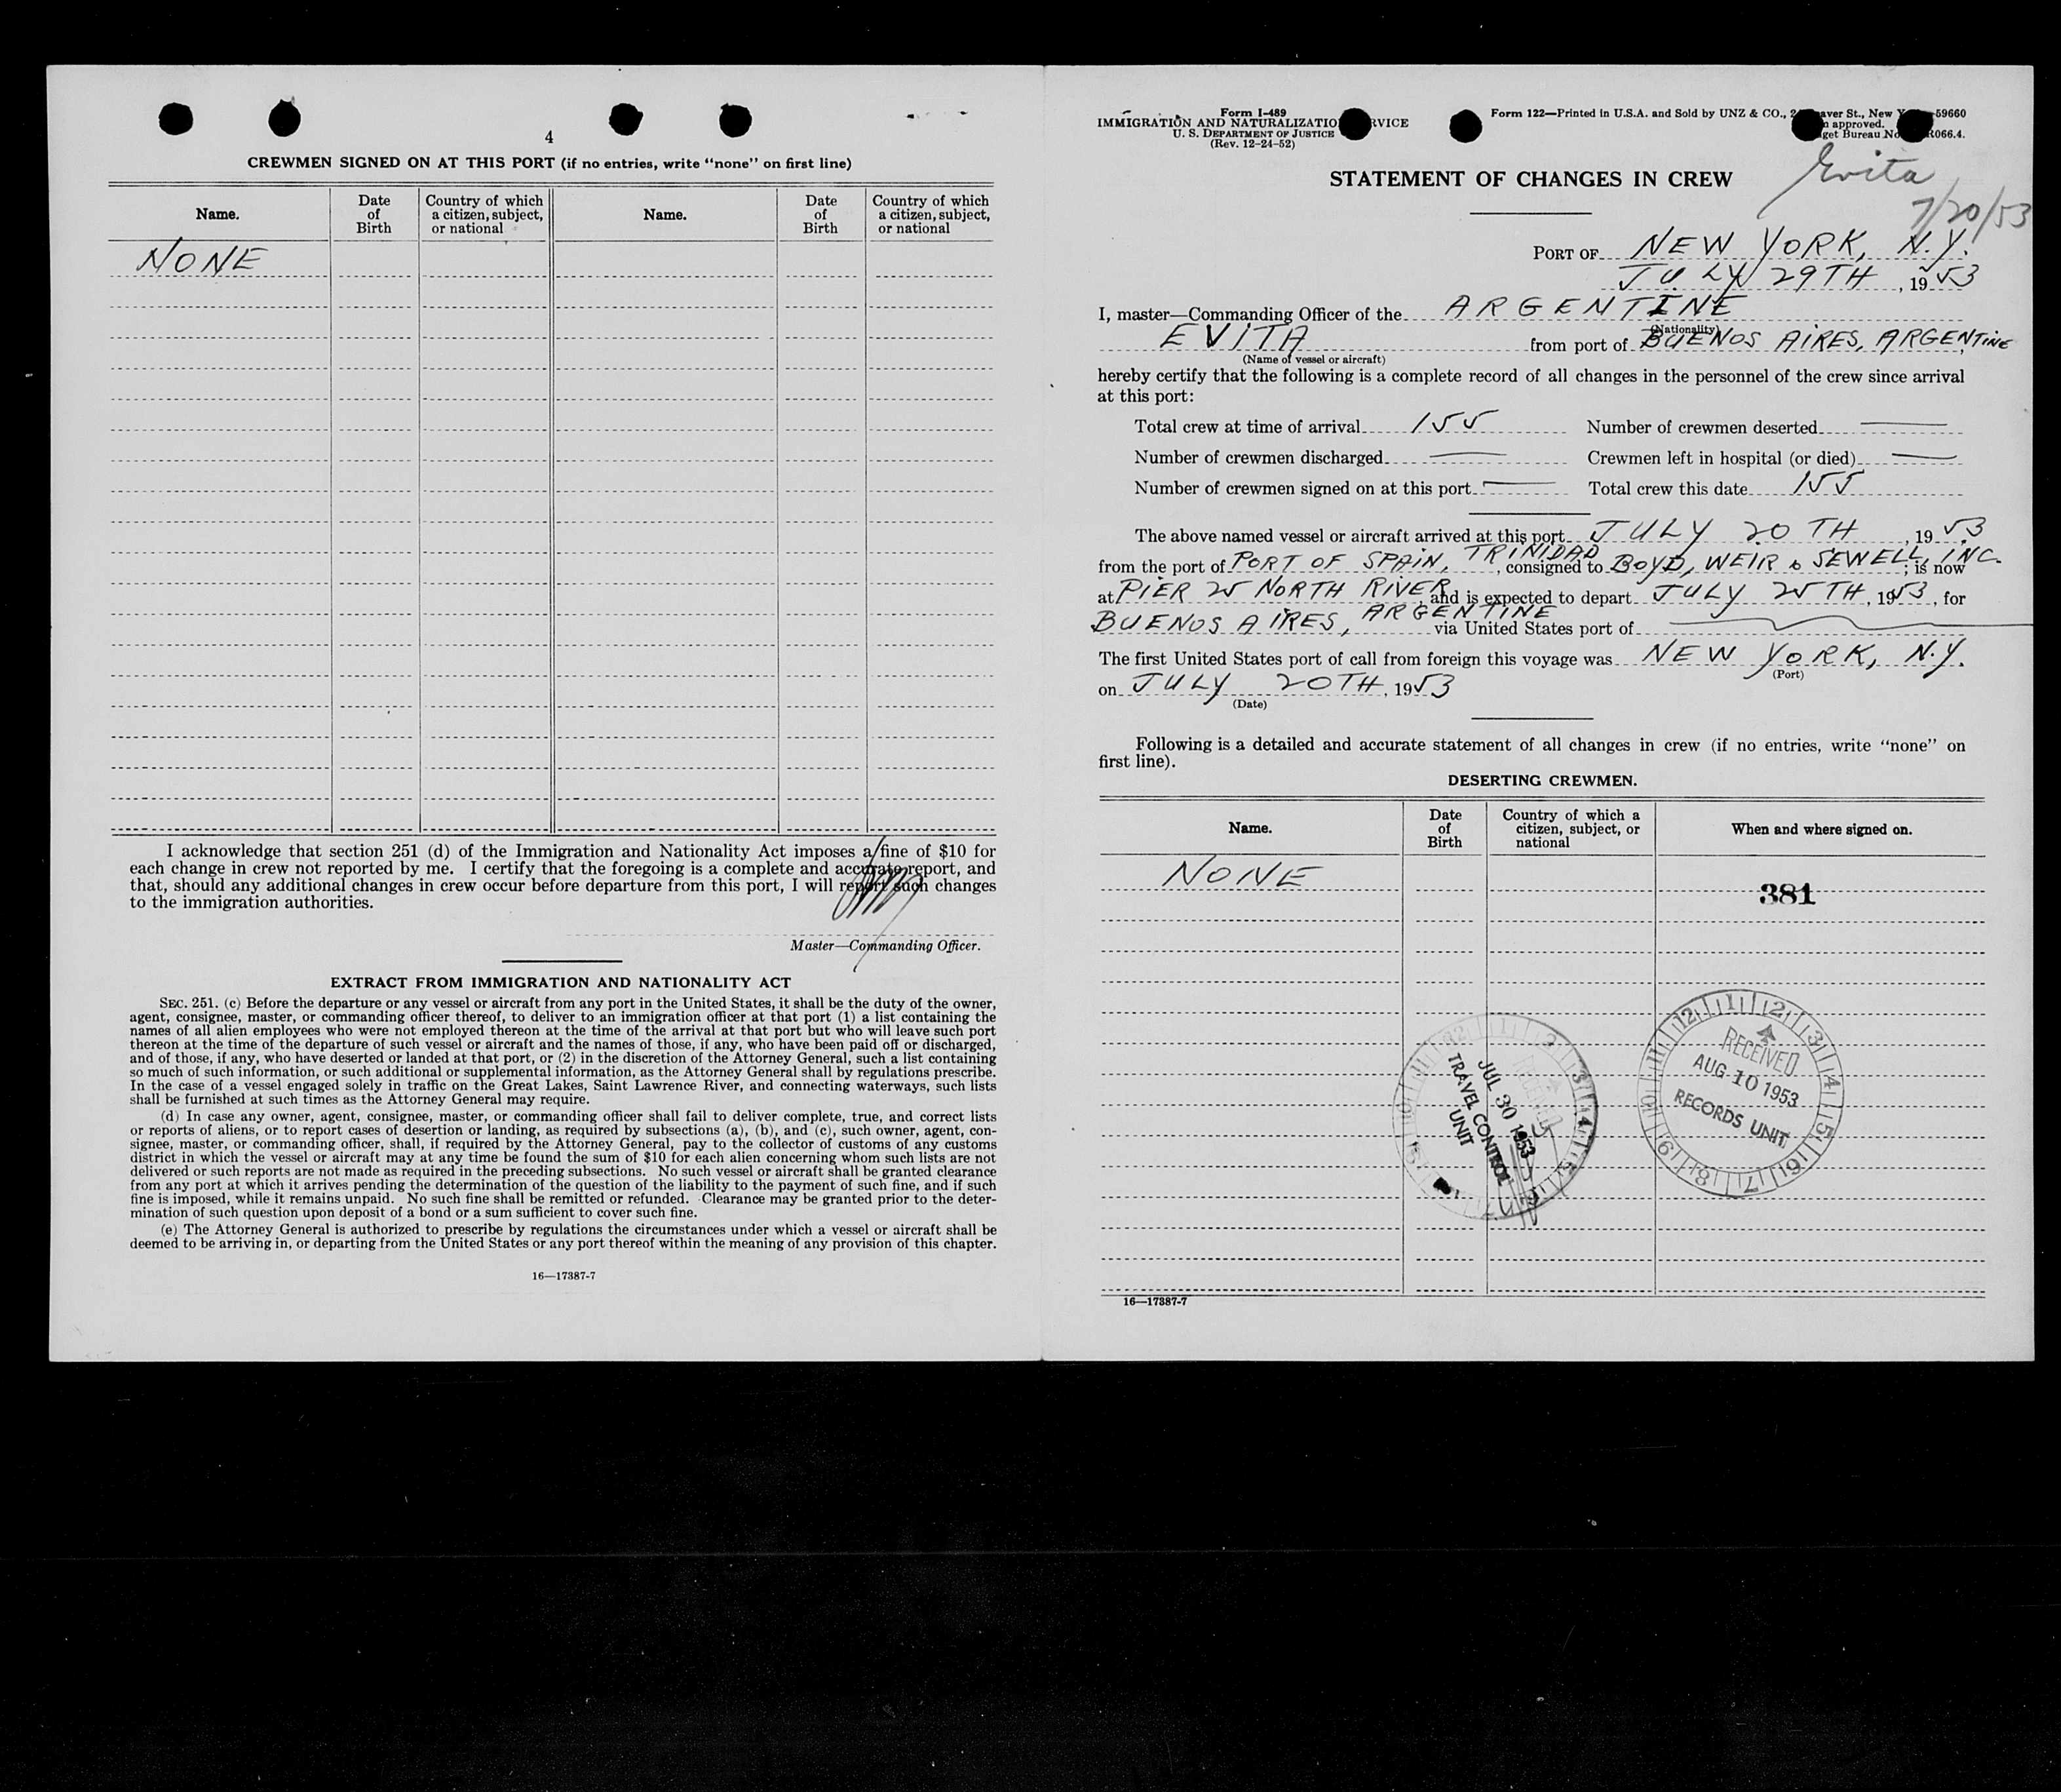 4
CREWMEN SIGNED ON AT THIS PORT (if no entries, write "none" on first line)
Name. Date of Birth Country of which a citizen, subject, or national Name. Date of Birth Country of which a citizen, subject, or national
NONE
I acknowledge that section 251 (d) of the Immigration and Nationality Act imposes a fine of $10 for
each change in crew not reported by me. I certify that the foregoing is a complete and accurate report, and
that, should any additional changes in crew occur before departure from this port, I will report such changes
to the immigration authorities.
Master—Commanding Officer.
EXTRACT FROM IMMIGRATION AND NATIONALITY ACT
SEC. 251. (c) Before the departure or any vessel or aircraft from any port in the United States, it shall be the duty of the owner,
agent, consignee, master, or commanding officer thereof, to deliver to an immigration officer at that port (1) a list containing the
names of all alien employees who were not employed thereon at the time of the arrival at that port but who will leave such port
thereon at the time of the departure of such vessel or aircraft and the names of those, if any, who have been paid off or discharged,
and of those, if any, who have deserted or landed at that port, or (2) in the discretion of the Attorney General, such a list containing
so much of such information, or such additional or supplemental information, as the Attorney General shall by regulations prescribe.
In the case of a vessel engaged solely in traffic on the Great Lakes, Saint Lawrence River, and connecting waterways, such lists
shall be furnished at such times as the Attorney General may require.
(d) In case any owner, agent, consignee, master, or commanding officer shall fail to deliver complete, true, and correct lists
or reports of aliens, or to report cases of desertion or landing, as required by subsections (a), (b), and (c), such owner, agent, con-
signee, master, or commanding officer, shall, if required by the Attorney General, pay to the collector of customs of any customs
district in which the vessel or aircraft may at any time be found the sum of $10 for each alien concerning whom such lists are not
delivered or such reports are not made as required in the preceding subsections. No such vessel or aircraft shall be granted clearance
from any port at which it arrives pending the determination of the question of the liability to the payment of such fine, and if such
fine is imposed, while it remains unpaid. No such fine shall be remitted or refunded. Clearance may be granted prior to the deter-
mination of such question upon deposit of a bond or a sum sufficient to cover such fine.
(e) The Attorney General is authorized to prescribe by regulations the circumstances under which a vessel or aircraft shall be
deemed to be arriving in, or departing from the United States or any port thereof within the meaning of any provision of this chapter.
16—17387-7
Form I-489
IMMIGRATION AND NATURALIZATIO RVICE
U. S. DEPARTMENT OF JUSTICE
(Rev. 12-24-52)
Form 122—Printed in U.S.A. and Sold by UNZ & CO., 2 aver St., New Y 59660
approved.
get Bureau No. R066.4.
Evita
7/20/53
STATEMENT OF CHANGES IN CREW
PORT OF NEW YORK, N.Y.
JULY 29TH, 1953
I, master—Commanding Officer of the ARGENTINE
(Nationality)
EVITA from port of BUENOS AIRES, ARGENTINE
(Name of vessel or aircraft)
hereby certify that the following is a complete record of all changes in the personnel of the crew since arrival
at this port:
Total crew at time of arrival 155 Number of crewmen deserted —
Number of crewmen discharged — Crewmen left in hospital (or died) —
Number of crewmen signed on at this port — Total crew this date 155
The above named vessel or aircraft arrived at this port JULY 20TH, 1953
from the port of PORT OF SPAIN, TRINIDAD, consigned to BOYD, WEIR & SEWELL, INC.; is now
at PIER 25 NORTH RIVER, and is expected to depart JULY 25TH, 1953, for
BUENOS AIRES, ARGENTINE via United States port of
The first United States port of call from foreign this voyage was NEW YORK, N.Y.
(Port)
on JULY 20TH, 1953
(Date)
Following is a detailed and accurate statement of all changes in crew (if no entries, write "none" on
first line).
DESERTING CREWMEN.
Name. Date of Birth Country of which a citizen, subject, or national When and where signed on.
NONE
381
RECEIVED
JUL 30 1953
TRAVEL CONTROL
UNIT
RECEIVED
AUG 10 1953
RECORDS UNIT
16—17387-7